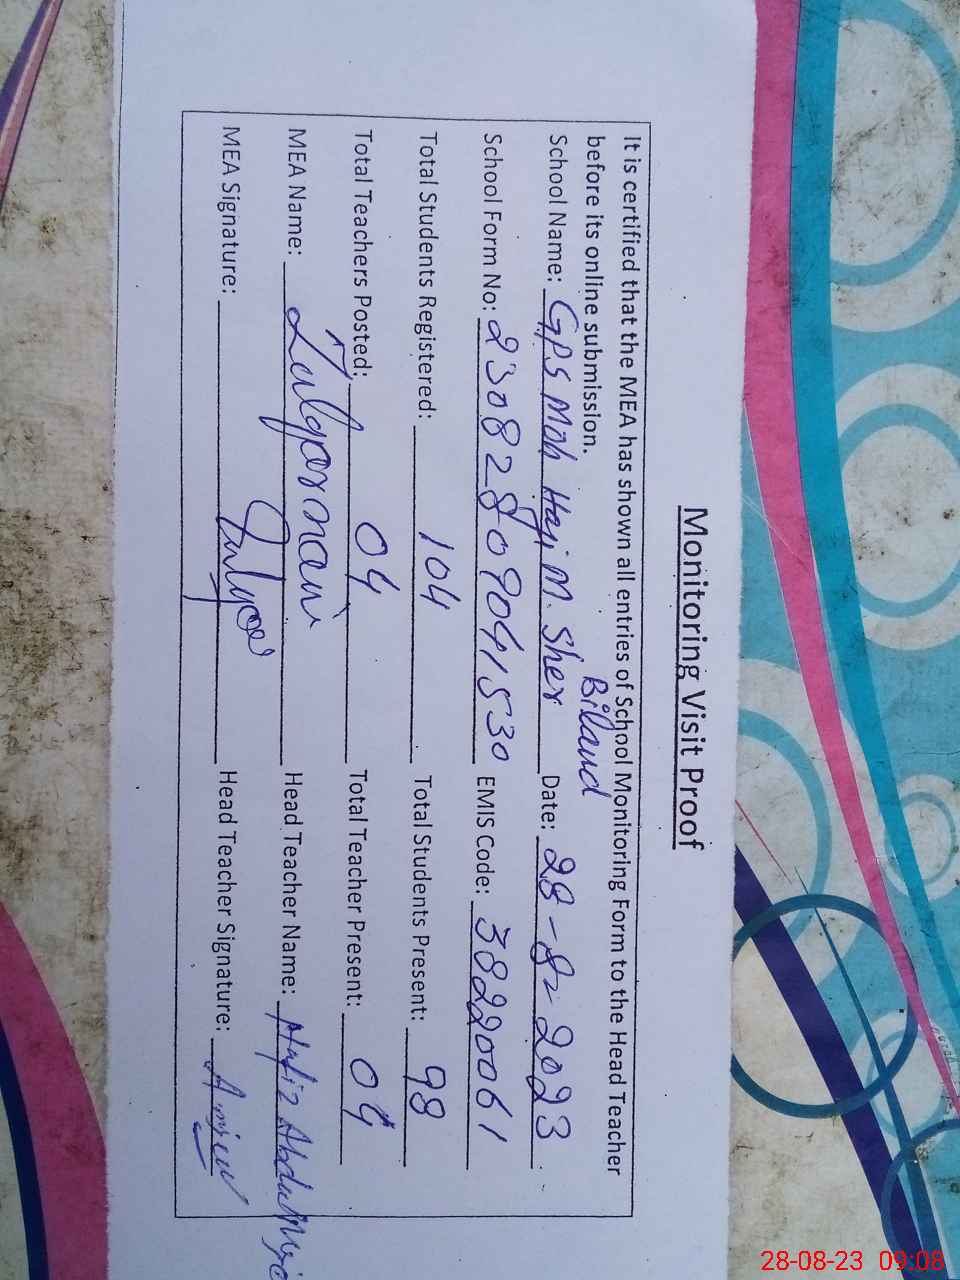 Monitoring Visit Proof
It is certified that the MEA has shown all entries of School Monitoring Form to the Head Teacher
before its online submission.
Biland
School Name: GPS Moh Haji M. Sher Date: 28-8-2023
School Form No: 23082809041530 EMIS Code: 38220061
Total Students Registered: 104 Total Students Present: 98
Total Teachers Posted: 04 Total Teacher Present: 04
MEA Name: Zulqarnain Head Teacher Name: Hafiz Abdul
MEA Signature: Head Teacher Signature:
28-08-23 09:08